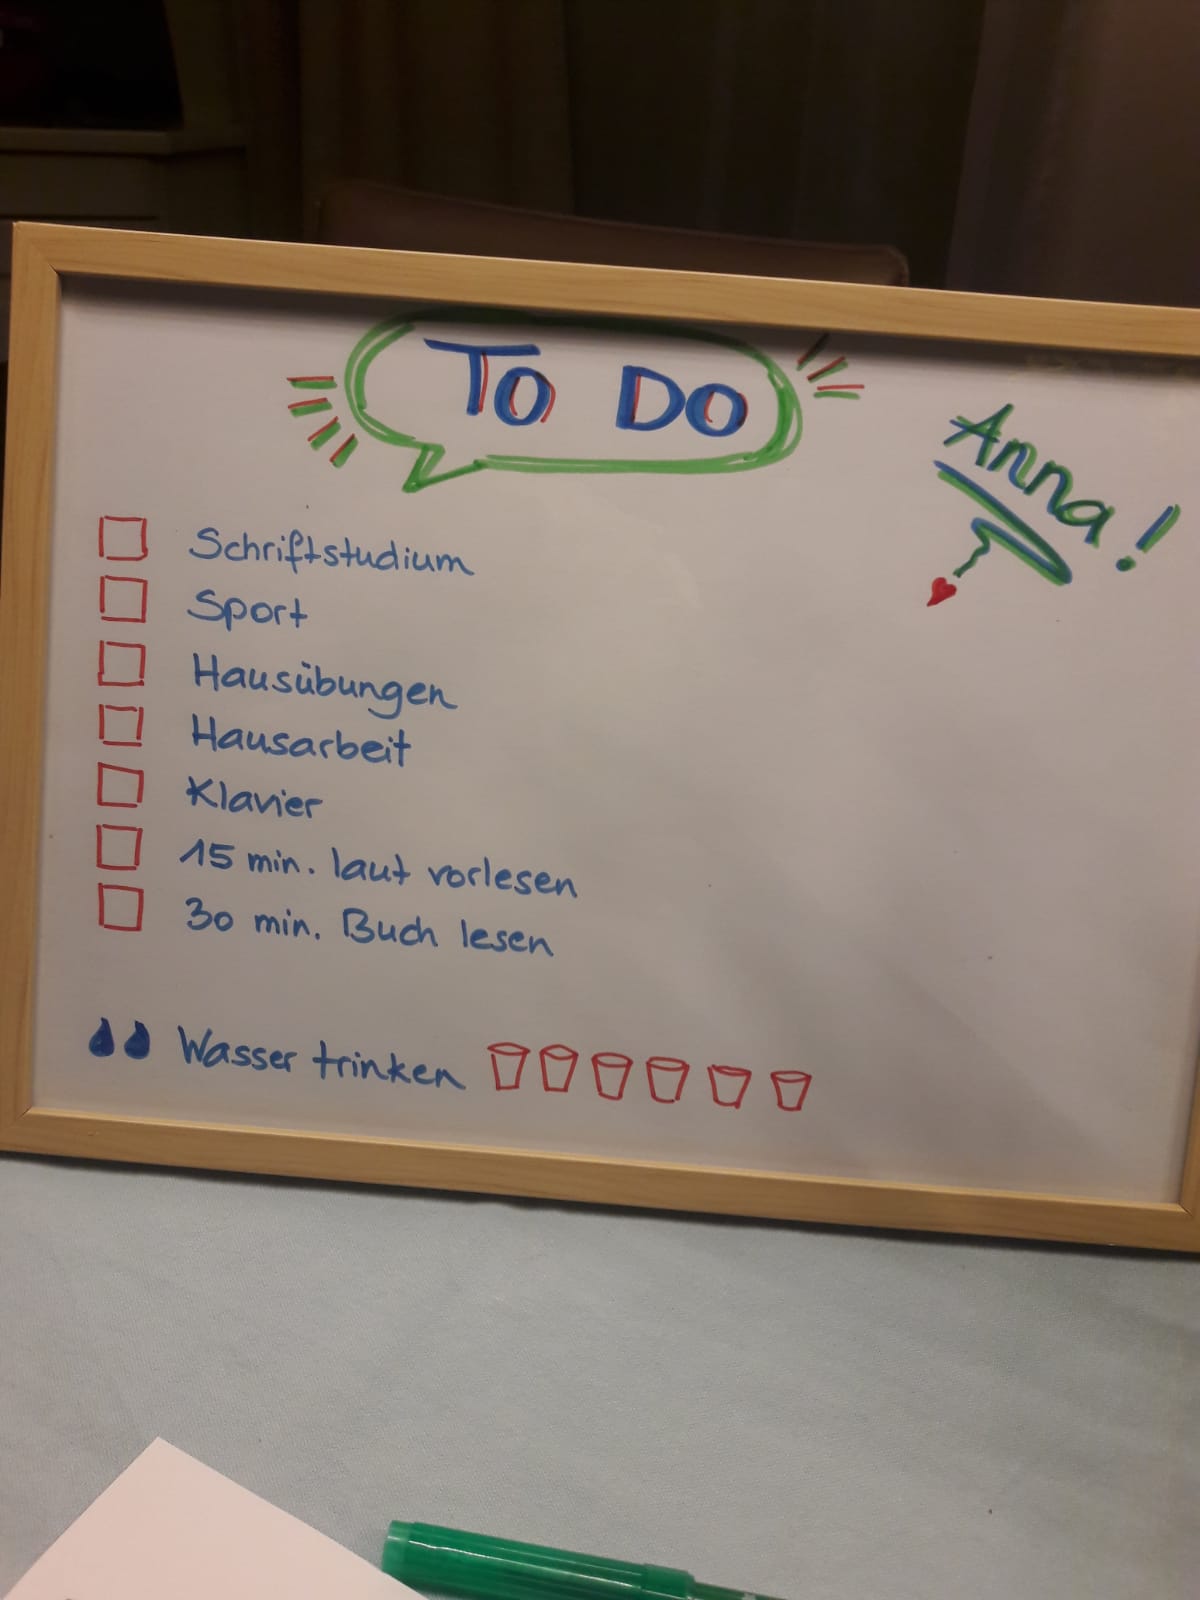 TO DO
Anna!
Schriftstudium
Sport
Hausübungen
Hausarbeit
Klavier
15 min. laut vorlesen
30 min. Buch lesen
Wasser trinken